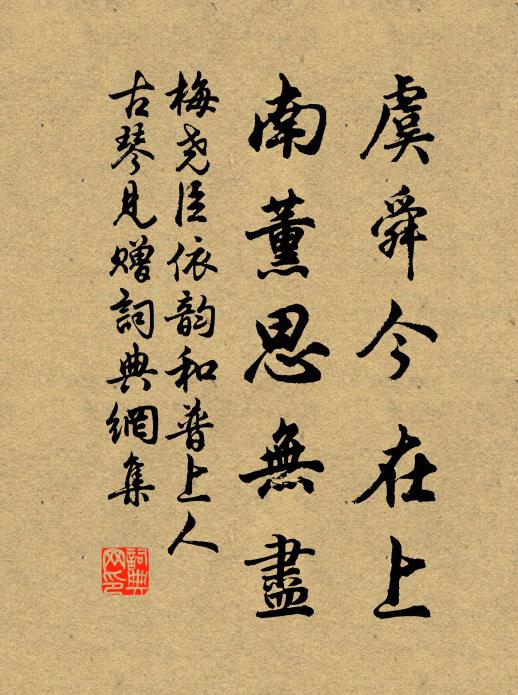 虞舜今在上
南薰思無盡
梅堯臣依韵和普上人
古琴見贈詞典網集
詞典網印